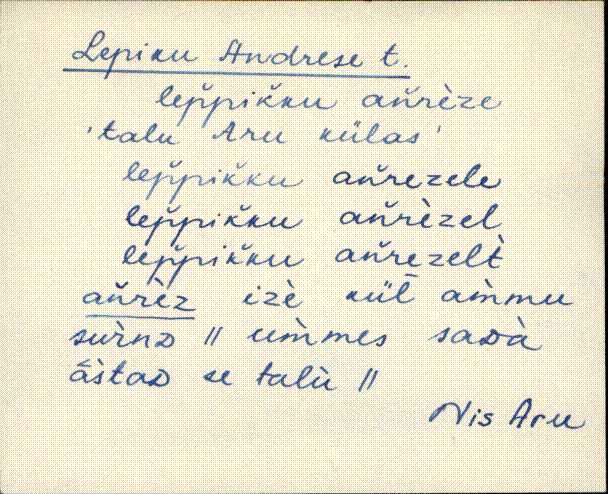 Lepiku Andrese t.
lep̆pik̆ku an̆rèze
'talu Aru külas'
lep̆pik̆ku an̆rezele
lep̆pik̆ku an̆rèzel
lep̆pik̆ku an̆rezelt̀
an̆rèz izè kül̄ am̀mu
sur̀nᴅ || um̀mes saᴅà
ās̀taᴅ se talù ||
Nis Aru